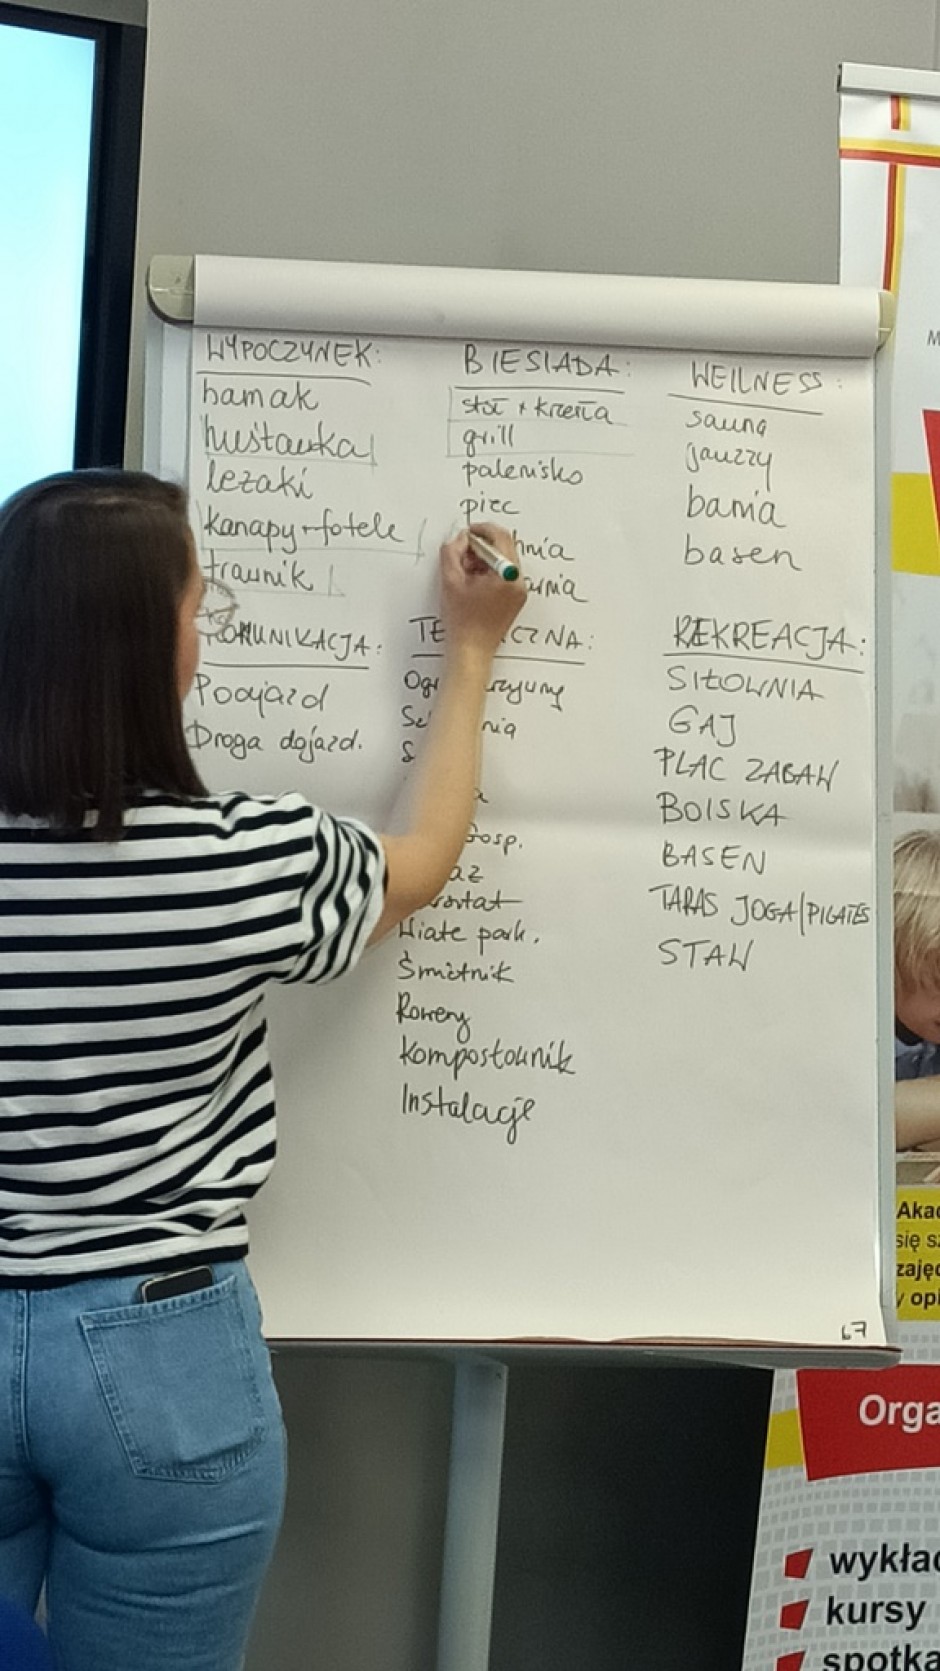 WYPOCZYNEK:
hamak
huśtawka
leżaki
kanapy + fotele
trawnik
BIESIADA:
stół + krzesła
grill
palenisko
piec
WELLNESS:
sauna
jauzzy
bania
basen
KOMUNIKACJA:
Podjazd
Droga dojazd.
Gosp.
Wiate park.
Śmietnik
Rowery
Kompostownik
Instalacje
REKREACJA:
SIŁOWNIA
GAJ
PLAC ZABAW
BOISKA
BASEN
TARAS JOGA/PILATES
STAW
67
M
Aka
się s
zaję
y opi
Orga
wykła
kursy
spotka